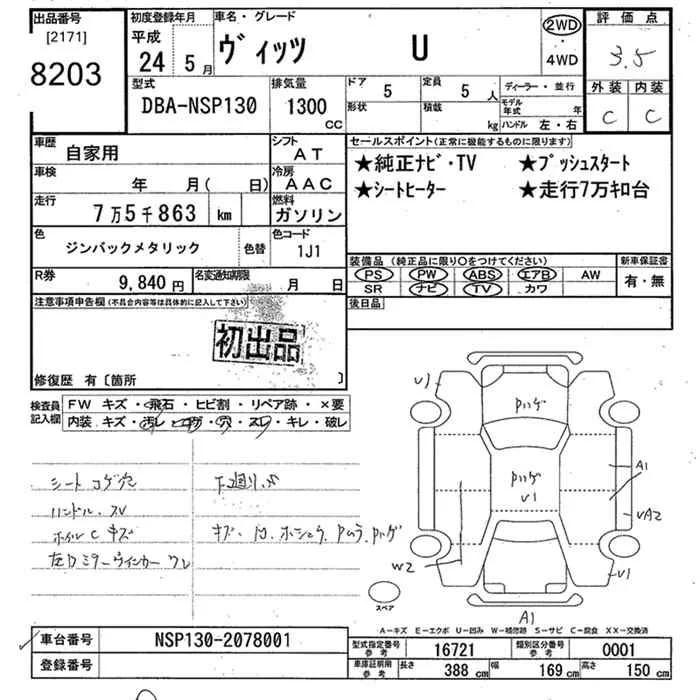 出品番号 初度登録年月 車名・グレード 評価点
[2171] 平成 ヴィッツ U 2WD 3.5
8203 24 5月 ・4WD
型式 排気量 ドア 5 定員 5人 ディーラー・並行 外装 内装
DBA-NSP130 1300 CC 形状 積載 kg モデル年式 年 C C
ハンドル 左・右
車歴 自家用 シフト AT セールスポイント(正常に機能するものに限ります)
車検 年 月( 日) 冷房 AAC ★純正ナビ・TV ★プッシュスタート
走行 7万5千863 km 燃料 ガソリン ★シートヒーター ★走行7万キロ台
色 ジンバックメタリック 色替 色コード 1J1
装備品 (純正品に限り○をつけてください) 新車保証書
R券 9,840円 名変通知期限 月 日 PS PW ABS エアB AW 有・無
SR ナビ TV カワ
注意事項申告欄(不具合内容等は具体的に記入して下さい) 後日品
初出品
修復歴 有〔箇所 〕
検査員記入欄 FW キズ・飛石・ヒビ割・リペア跡・×要
内装 キズ・汚レ・コゲ・穴・スレ・キレ・破レ
シート コゲ穴 下廻りサビ
ハンドル、スレ
ホイルC キズ
左ドミラーウインカー ワレ
U1
Pハゲ
Pハゲ
U1
A1
UA2
W2
U1
スペア
A1
A―キズ E―エクボ U―凹み W―補修跡 S―サビ C―腐食 XX―交換済
車台番号 NSP130-2078001 型式指定番号 参考 16721 類別区分番号 参考 0001
登録番号 車庫証明用 参考 長さ 388 cm 幅 169 cm 高さ 150 cm